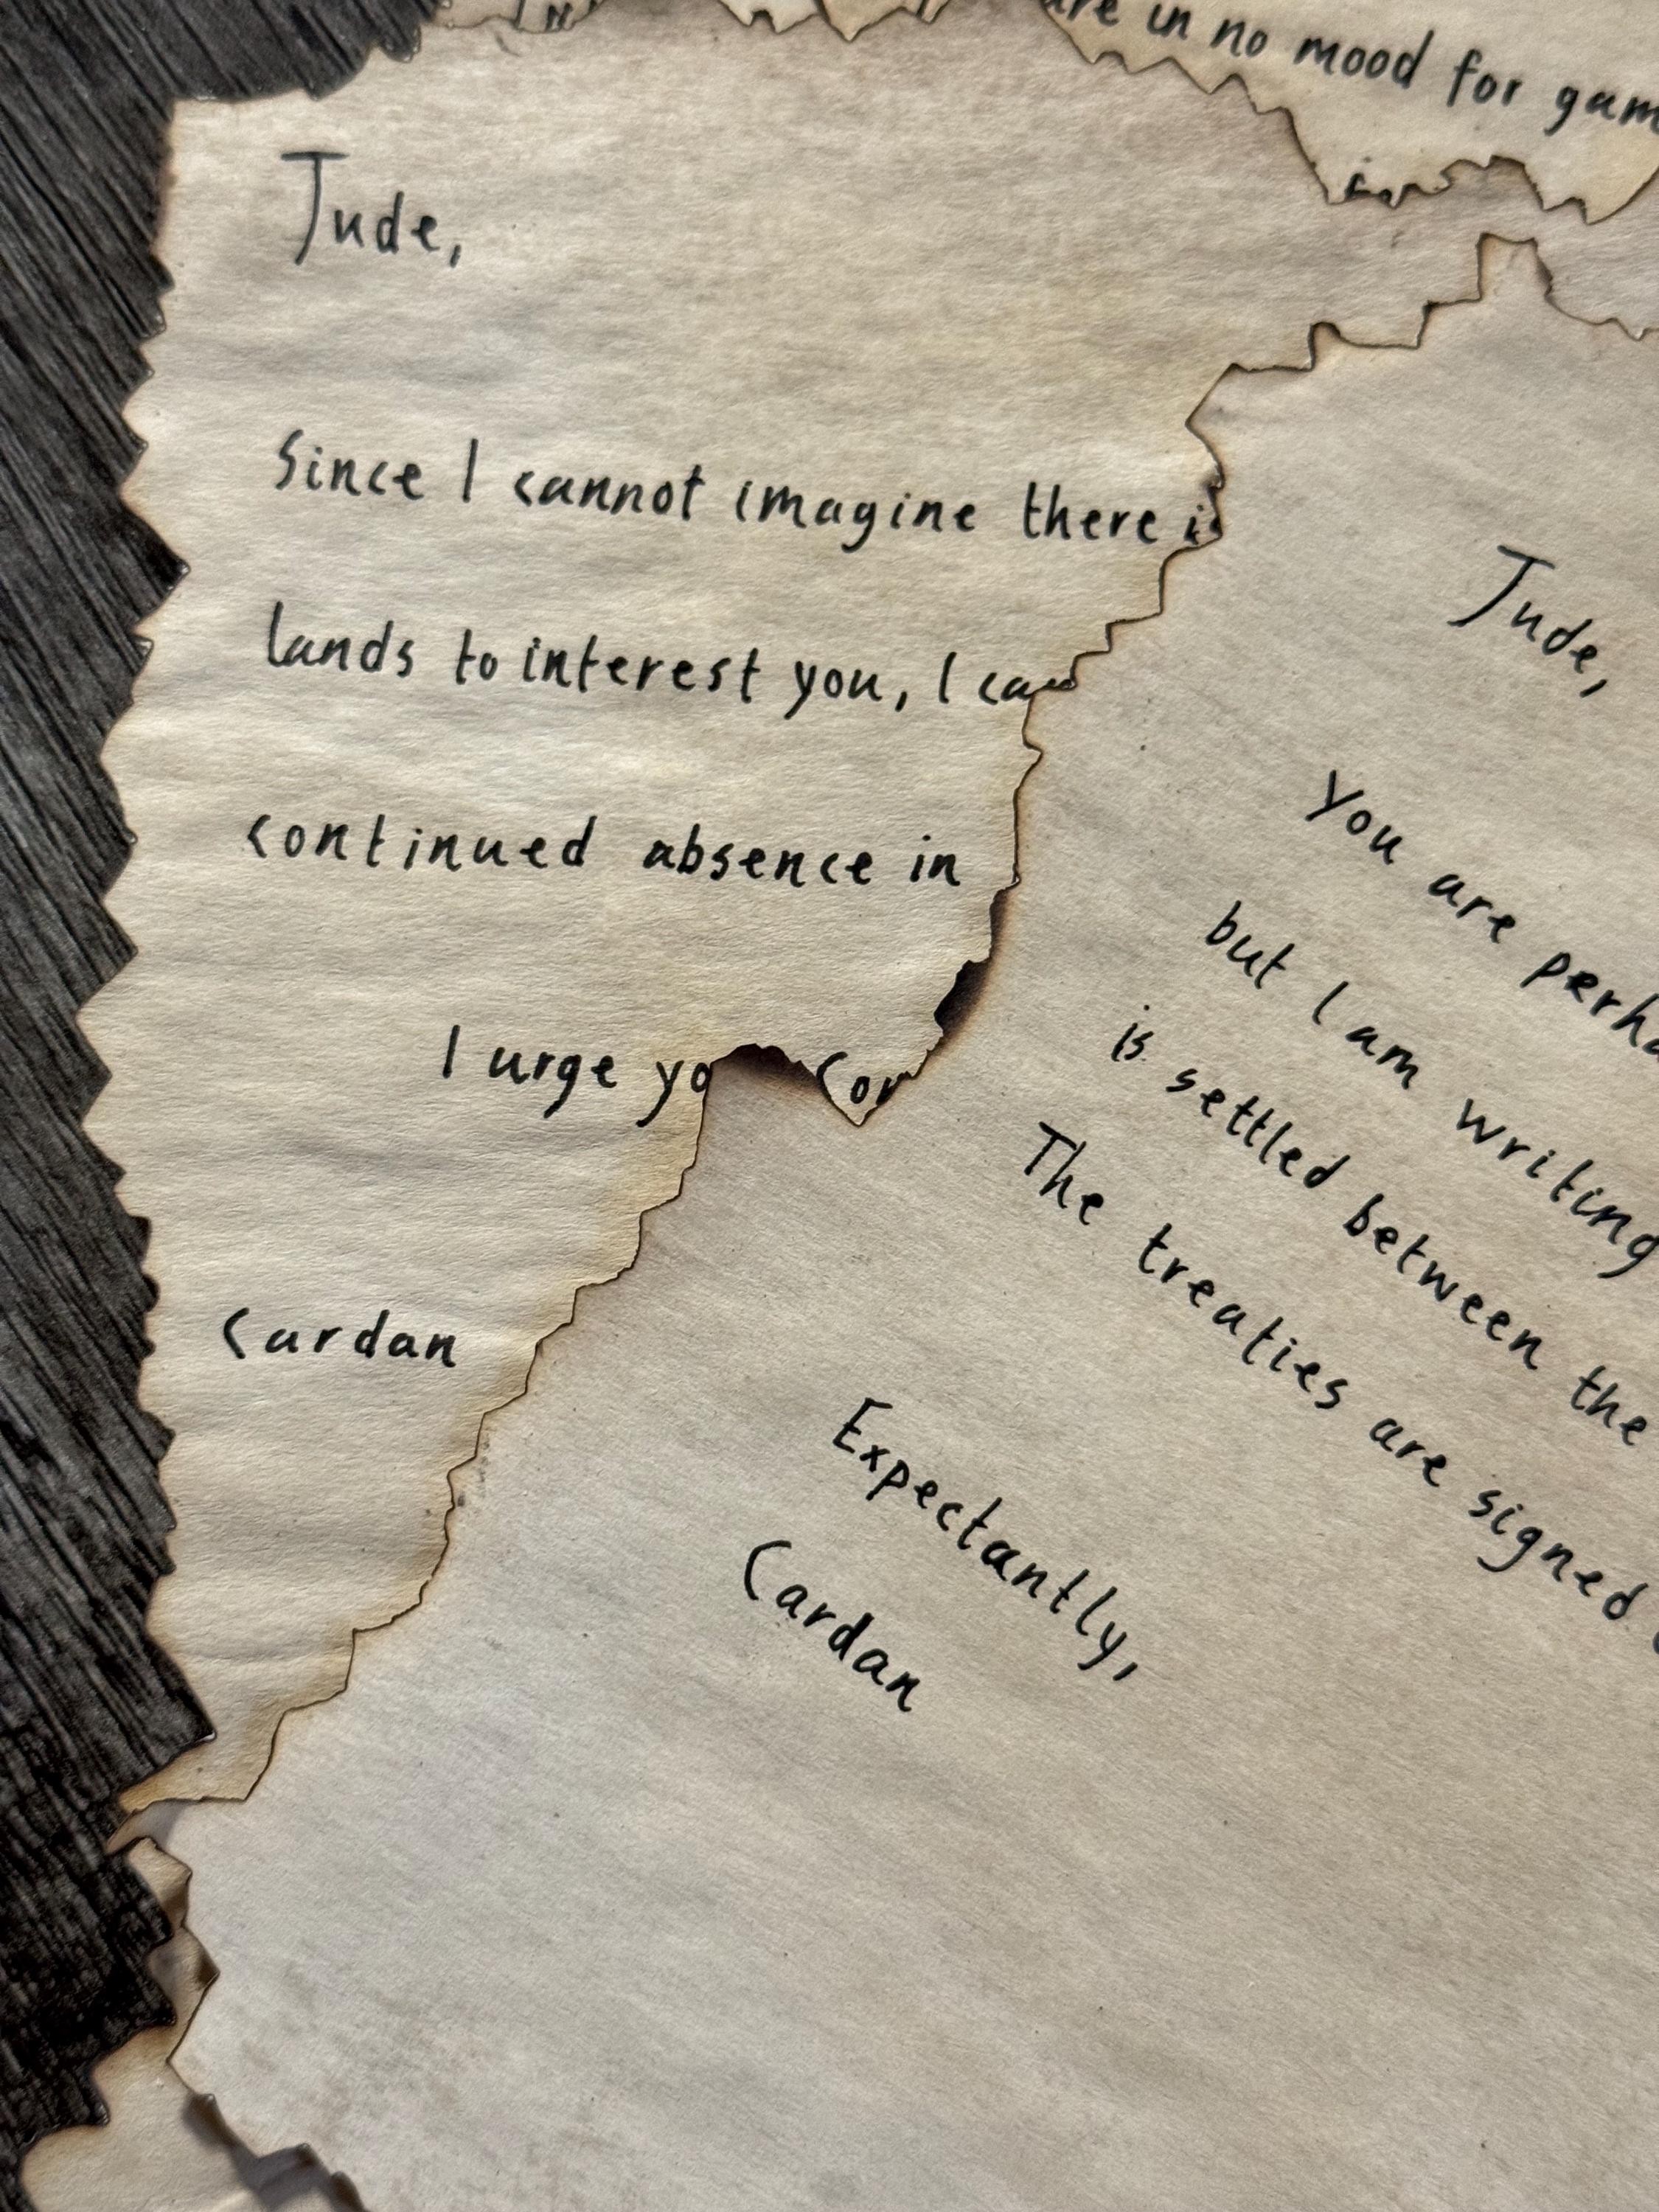 in no mood for gam
Jude,
Since I cannot imagine there is
lands to interest you, I can
continued absence in
I urge yo Cor
Cardan
Jude,
You are perha
but I am writing
is settled between the
The treaties are signed
Expectantly,
Cardan